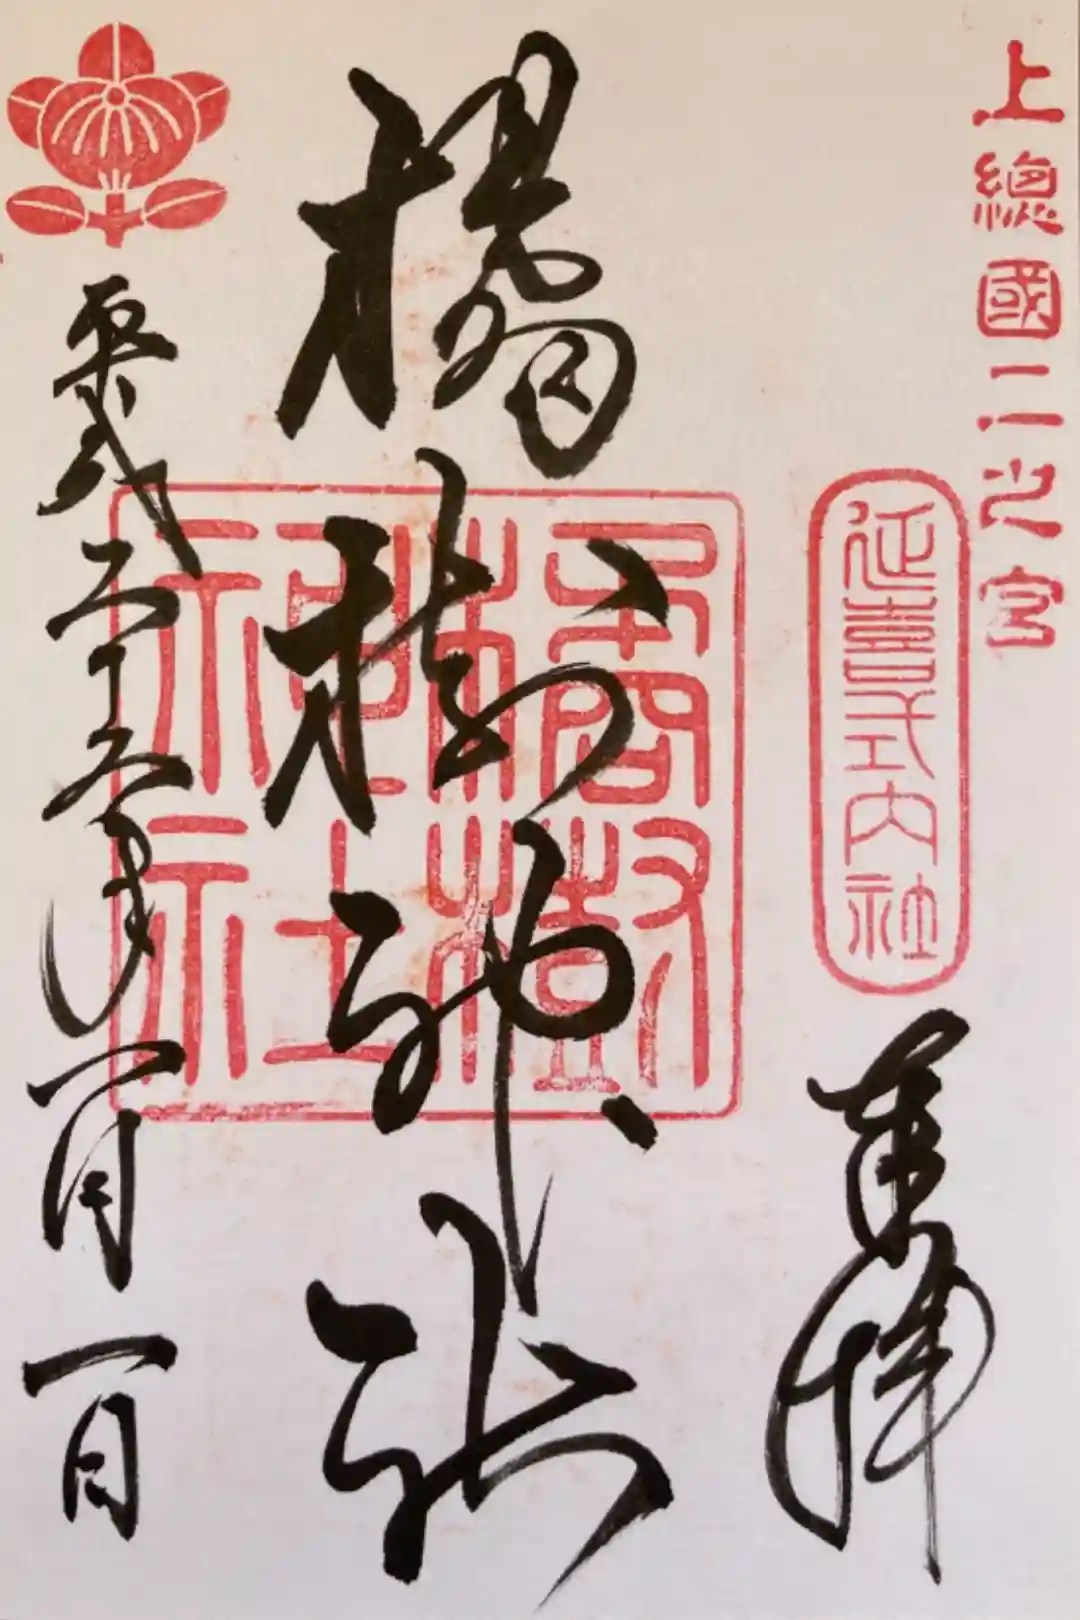 上總國二之宮
延喜式内社
奉拝
橘樹神社
橘樹神社
平成 十 年一月一日